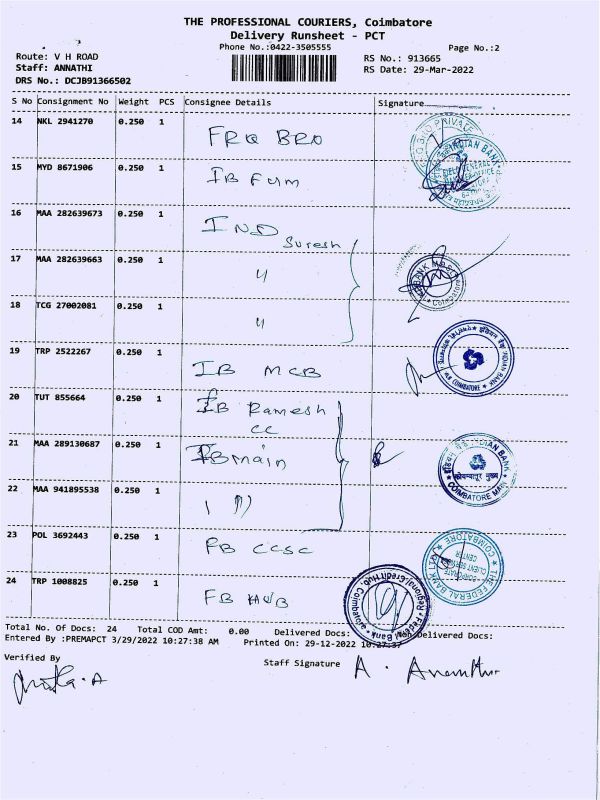 THE PROFESSIONAL COURIERS, Coimbatore
Delivery Runsheet - PCT
Phone No.:0422-3505555 Page No.:2
Route: V H ROAD RS No.: 913665
Staff: ANNATHI RS Date: 29-Mar-2022
DRS No.: DCJB91366502
S No Consignment No Weight PCS Consignee Details Signature
14 NKL 2941270 0.250 1 FRQ BRO
15 MYD 8671906 0.250 1 IB
16 MAA 282639673 0.250 1 IND Suresh
17 MAA 282639663 0.250 1 "
18 TCG 27002081 0.250 1 "
19 TRP 2522267 0.250 1 IB MCB
20 TUT 855664 0.250 1 IB Ramesh
CC
21 MAA 289130687 0.250 1 IB main
22 MAA 941895538 0.250 1
23 POL 3692443 0.250 1 FB CCSC
24 TRP 1008825 0.250 1 FB HUB
INDIAN BANK
INDIAN BANK
COIMBATORE
INDIAN BANK
कोयम्बत्तूर मुख्य
COIMBATORE MAIN
THE FEDERAL BANK
CORPORATE
CLIENT SERVICE
CENTER
COIMBATORE
Regional Credit Hub, Coimbatore
Total No. Of Docs: 24 Total COD Amt: 0.00 Delivered Docs: Non Delivered Docs:
Entered By :PREMAPCT 3/29/2022 10:27:38 AM Printed On: 29-12-2022 10:27:37
Verified By
Staff Signature